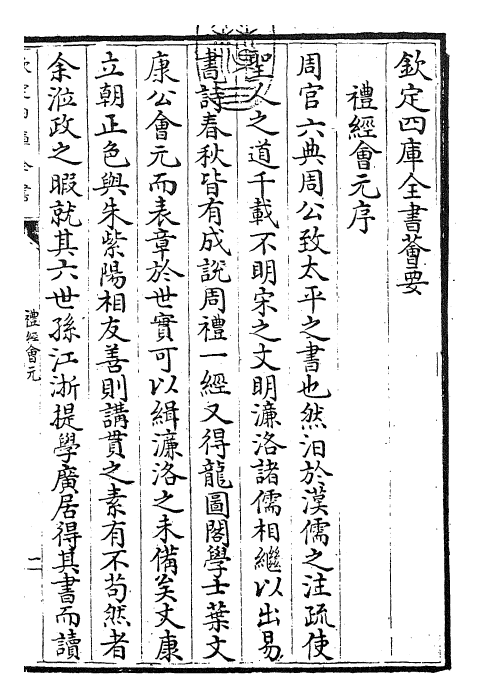 欽定四庫全書薈要
禮經會元序
周官六典周公致太平之書也然汩於漢儒之注疏使
聖人之道千載不明宋之文明濂洛諸儒相繼以出易
書詩春秋皆有成說周禮一經又得龍圖閣學士葉文
康公會元而表章於世實可以緝濂洛之未備矣文康
立朝正色與朱紫陽相友善則講貫之素有不苟然者
余涖政之暇就其六世孫江浙提學廣居得其書而讀
禮經會元
二